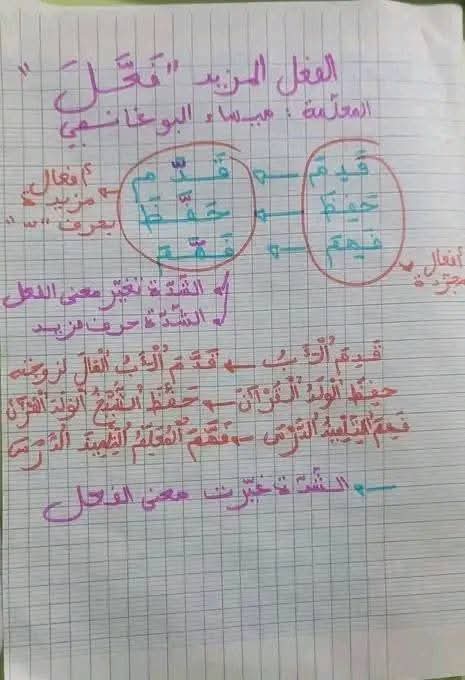 الفعل المزيد "فَعَّلَ"
المعلّمة : ميساء البوغانمي
قَدِمَ ← قَدَّمَ
حَفِظَ ← حَفَّظَ
فَهِمَ ← فَهَّمَ
أفعال مجرّدة
أفعال مزيدة بحرف "ّ"
الشّدّة تغيّر معنى الفعل
الشّدّة حرف مزيد
قَدِمَ الْأَبُ ← قَدَّمَ الْأَبُ الْمَالَ لزوجته
حفظَ الْوَلَدُ الْقُرْآنَ ← حَفَّظَ الشَّيْخُ الْوَلَدَ الْقُرْآنَ
فَهِمَ التِّلْمِيذُ الدَّرْسَ ← فَهَّمَ الْمُعَلِّمُ التِّلْمِيذَ الدَّرْسَ
← الشّدّة غيّرت معنى الفعل